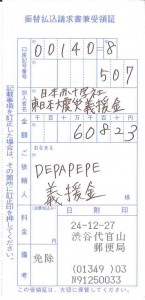 振替払込請求書兼受領証
口座記号番号
00140=8
507
加入者名
日本赤十字社
東日本大震災義援金
金額
千 百 十 万 千 百 十 円
60823
ご依頼人
おなまえ
DEPAPEPE
義援金
料金
日附印
24-12-27
渋谷代官山
郵便局
備考
免除
(01349)03
N91250033
この受領証は、大切に保管してください。
記載事項を訂正した場合は、その箇所に訂正印を押してください。